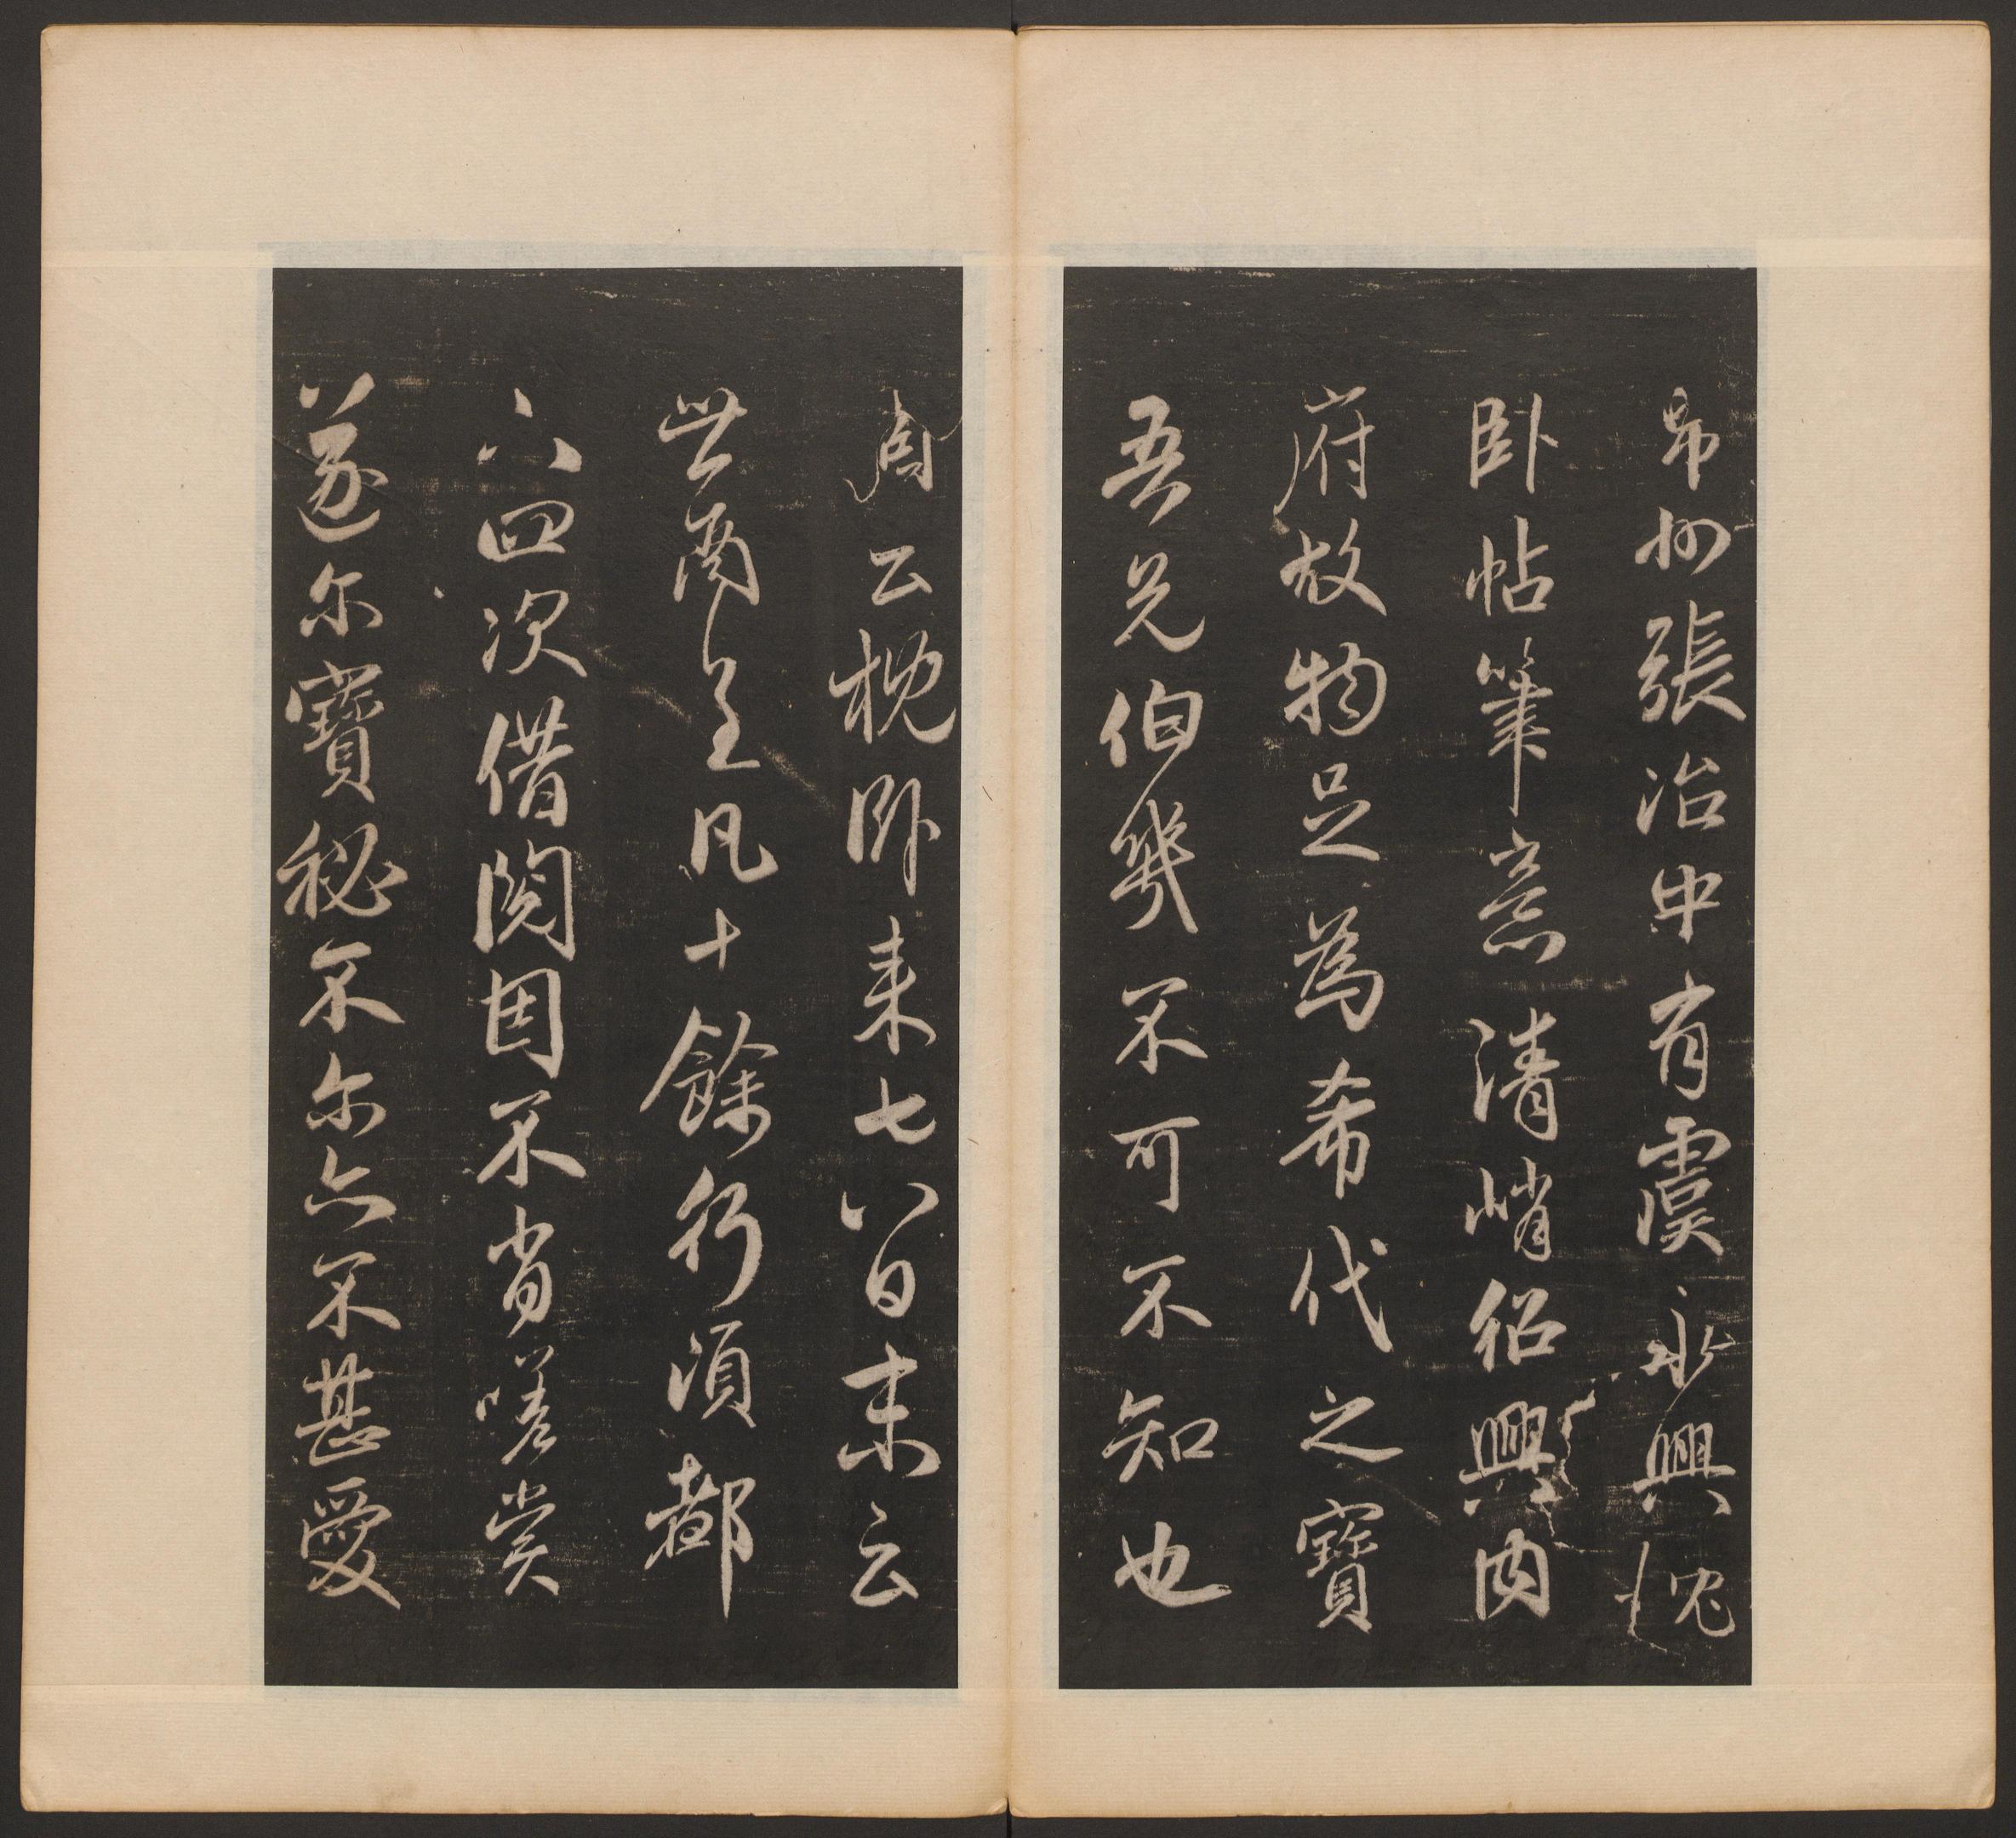 州張治中有虞永興枕
臥帖筆意清峭紹興內
府故物足為希代之寶
吾兄伯幾不可不知也
云枕卧来七八日末云
世南呈凡十餘行須都
下四次借閱因不肯嗟賞
遂尔寶秘不尔亦不甚愛